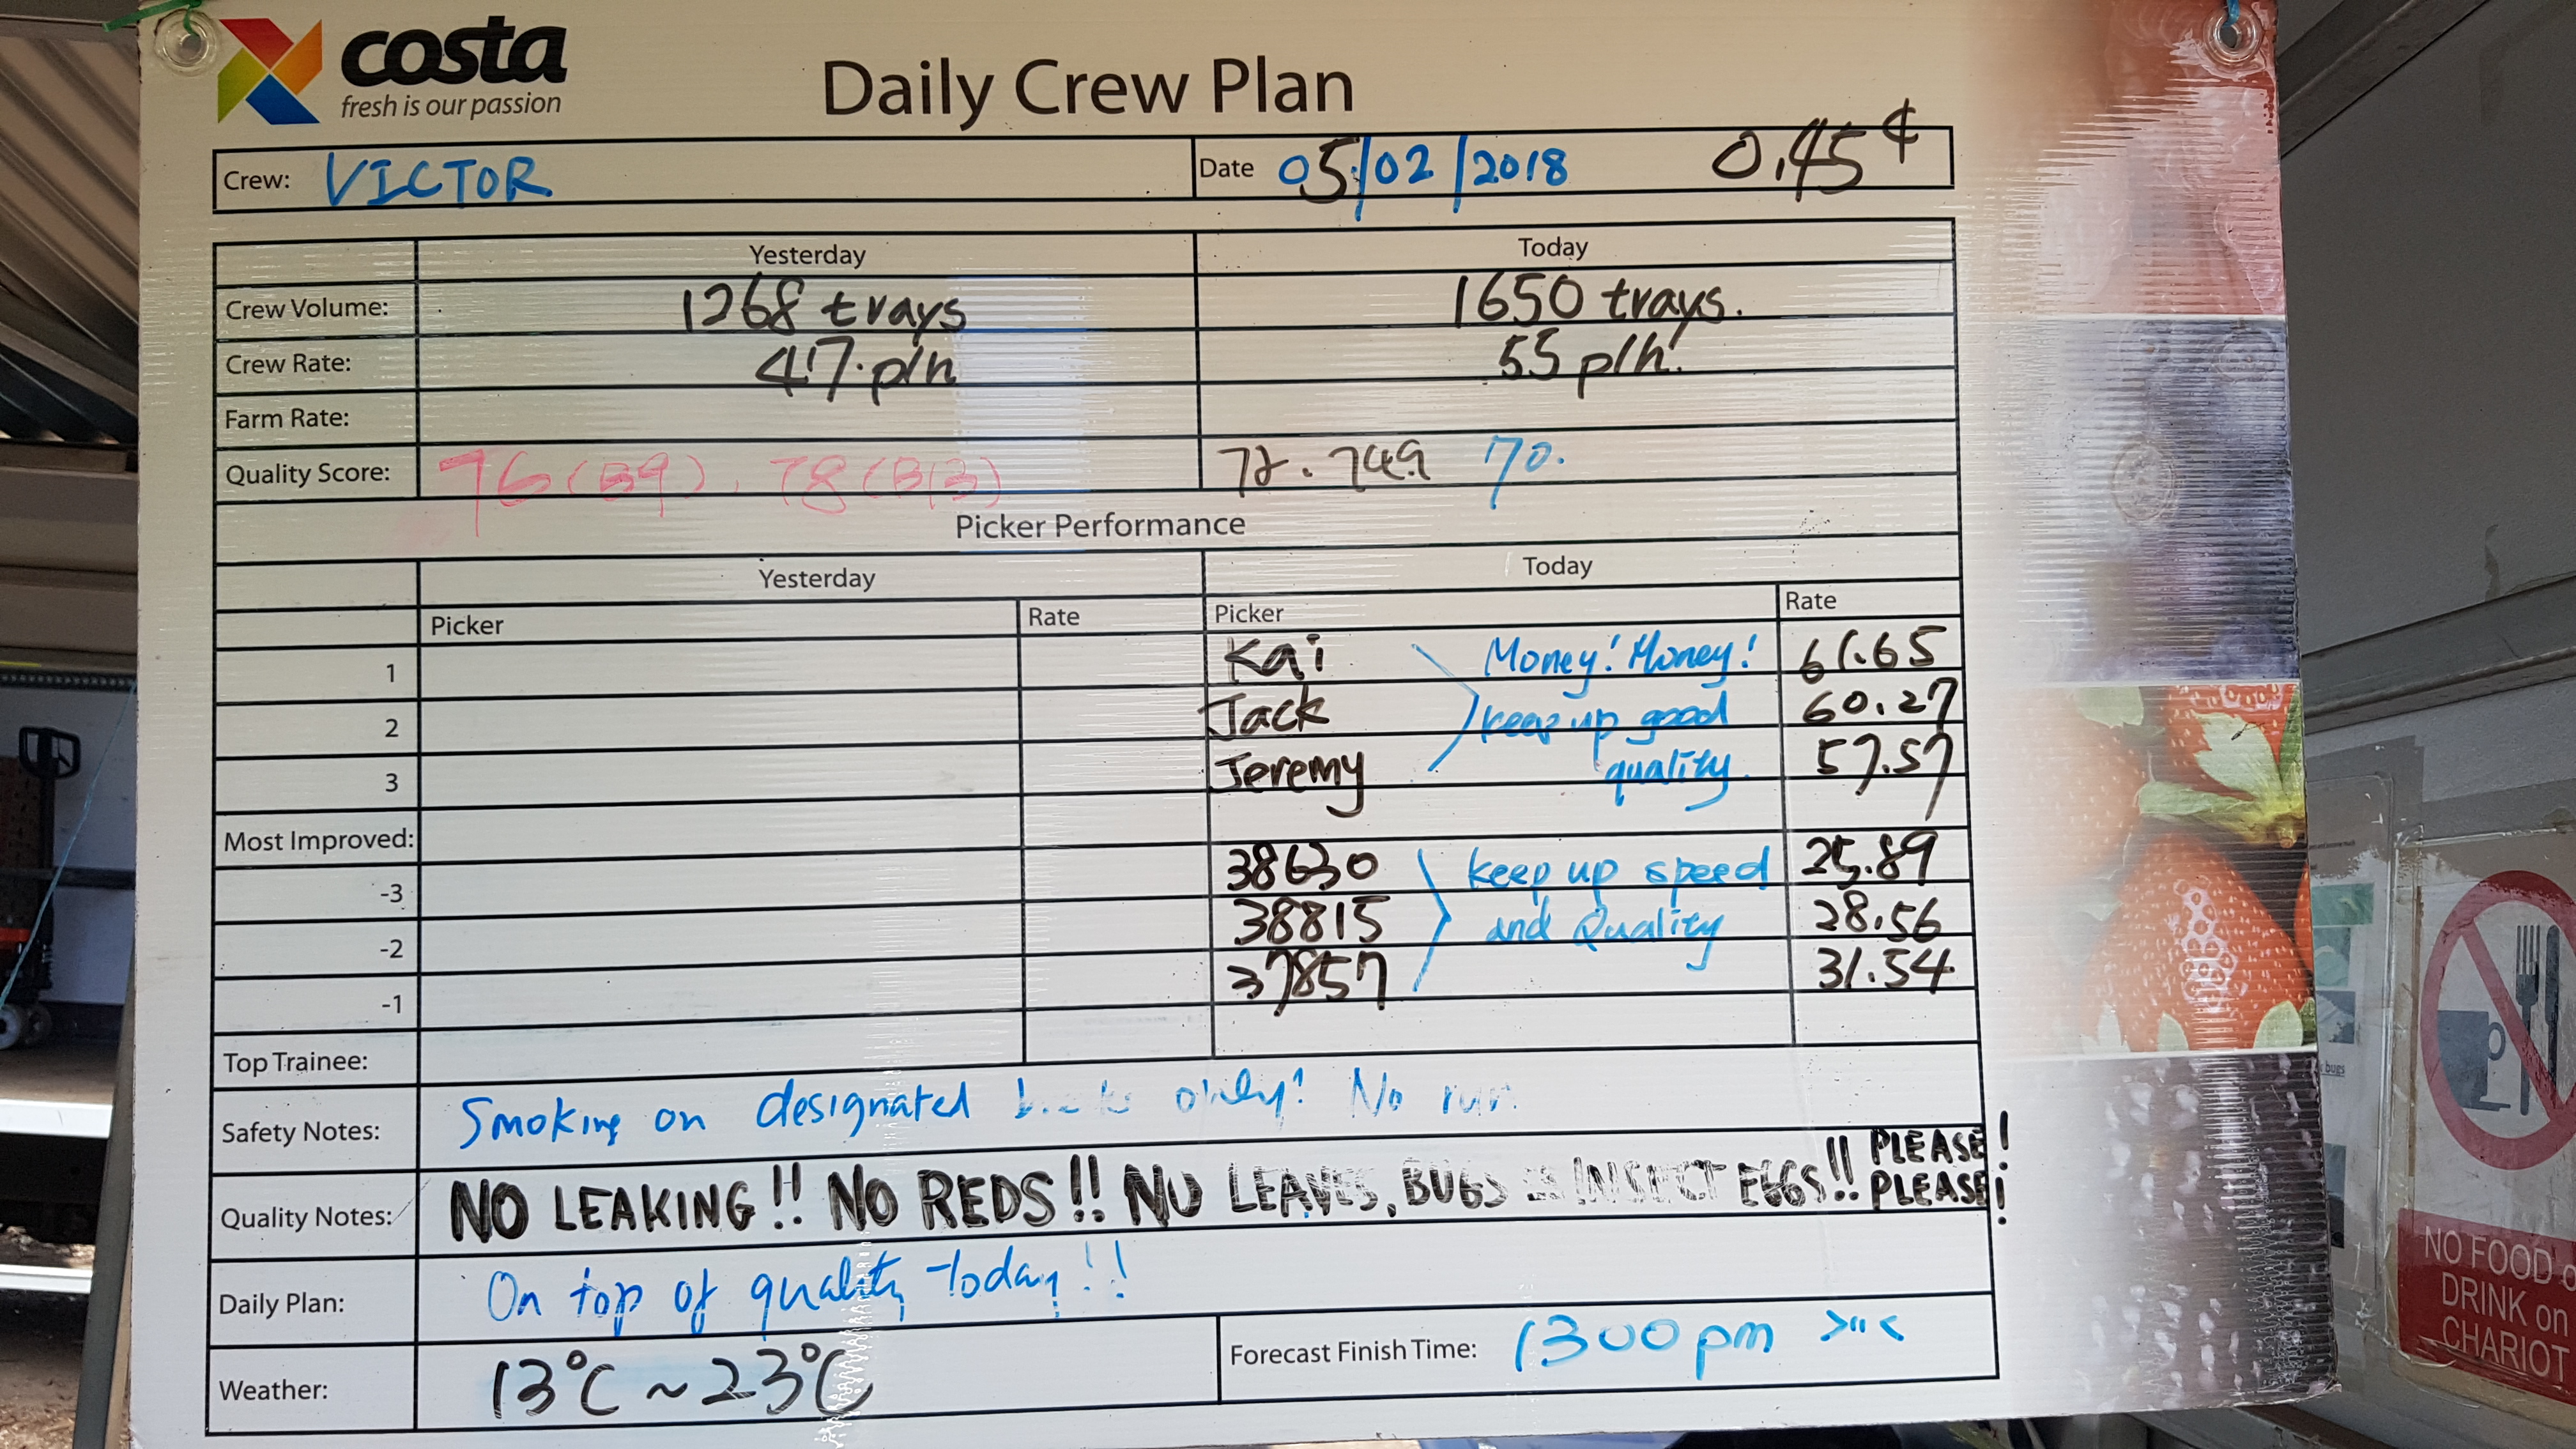 costa
fresh is our passion
Daily Crew Plan
Crew: VICTOR Date 05/02/2018 0.45¢
Yesterday Today
Crew Volume: 1268 trays 1650 trays.
Crew Rate: 47. p/h 55 p/h!
Farm Rate:
Quality Score: 76 (B9), 78 (B13) 72. 70.
Picker Performance
Yesterday Today
Picker Rate Picker Rate
1 Kai Money! Money! 61.65
2 Jack keep up good 60.27
3 Jeremy quality. 57.57
Most Improved:
-3 38630 keep up speed 25.89
-2 38815 and Quality 28.56
-1 37857 31.54
Top Trainee:
Safety Notes: Smoking on designated only! No
Quality Notes: NO LEAKING!! NO REDS!! NO LEAVES, BUGS INSECT EGGS!! PLEASE! PLEASE!
Daily Plan: On top of quality today!!
Weather: 13°C ~ 23°C Forecast Finish Time: 1300pm >"<
bugs
NO FOOD
DRINK on
CHARIOT